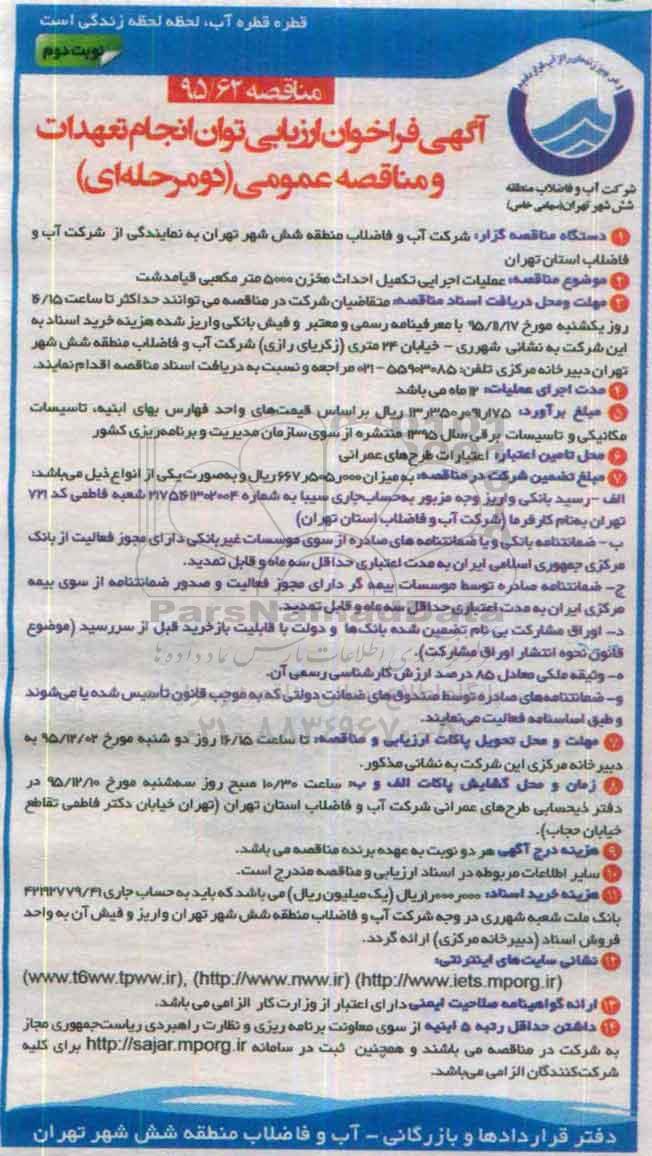 قطره قطره آب، لحظه لحظه زندگی است
نوبت دوم
مناقصه ۹۵/۶۲
آگهی فراخوان ارزیابی توان انجام تعهدات
و مناقصه عمومی (دو مرحله‌ای)
شرکت آب و فاضلاب منطقه
شش شهر تهران (سهامی خاص)
۱ دستگاه مناقصه گزار: شرکت آب و فاضلاب منطقه شش شهر تهران به نمایندگی از شرکت آب و
فاضلاب استان تهران
۲ موضوع مناقصه: عملیات اجرایی تکمیل احداث مخزن ۵۰۰۰ متر مکعبی قیامدشت
۳ مهلت و محل دریافت اسناد مناقصه: متقاضیان شرکت در مناقصه می توانند حداکثر تا ساعت ۱۶/۱۵
روز یکشنبه مورخ ۹۵/۱۱/۱۷ با معرفینامه رسمی و معتبر و فیش بانکی واریز شده هزینه خرید اسناد به
این شرکت به نشانی شهرری - خیابان ۲۴ متری (زکریای رازی) شرکت آب و فاضلاب منطقه شش شهر
تهران دبیرخانه مرکزی تلفن: ۵۵۹۰۳۰۸۵ - ۰۲۱ مراجعه و نسبت به دریافت اسناد مناقصه اقدام نمایند.
۴ مدت اجرای عملیات: ۱۲ ماه می باشد
۵ مبلغ برآورد: ۱۳,۳۵۰,۰۹۱,۱۷۵ ریال براساس قیمت‌های واحد فهارس بهای ابنیه، تاسیسات
مکانیکی و تاسیسات برقی سال ۱۳۹۵ منتشره از سوی سازمان مدیریت و برنامه‌ریزی کشور
۶ محل تامین اعتبار: اعتبارات طرح‌های عمرانی
۷ مبلغ تضمین شرکت در مناقصه: به میزان ۶۶۷,۵۰۵,۰۰۰ ریال و به‌صورت یکی از انواع ذیل می‌باشد:
الف - رسید بانکی واریز وجه مزبور به‌حساب جاری سیبا به شماره ۲۱۷۵۲۶۱۳۰۲۰۰۴ شعبه فاطمی کد ۷۲۱
تهران به‌نام کارفرما (شرکت آب و فاضلاب استان تهران)
ب - ضمانتنامه بانکی و یا ضمانتنامه های صادره از سوی موسسات غیر بانکی دارای مجوز فعالیت از بانک
مرکزی جمهوری اسلامی ایران به مدت اعتباری حداقل سه ماه و قابل تمدید.
ج- ضمانتنامه صادره توسط موسسات بیمه گر دارای مجوز فعالیت و صدور ضمانتنامه از سوی بیمه
مرکزی ایران به مدت اعتباری حداقل سه ماه و قابل تمدید.
د- اوراق مشارکت بی نام تضمین شده بانک‌ها و دولت با قابلیت بازخرید قبل از سررسید (موضوع
قانون نحوه انتشار اوراق مشارکت).
ه- وثیقه ملکی معادل ۸۵ درصد ارزش کارشناسی رسمی آن.
و- ضمانتنامه‌های صادره توسط صندوق های ضمانت دولتی که به موجب قانون تأسیس شده یا می‌شوند
و طبق اساسنامه فعالیت می‌نمایند.
۷ مهلت و محل تحویل پاکات ارزیابی و مناقصه: تا ساعت ۱۶/۱۵ روز دو شنبه مورخ ۹۵/۱۲/۰۲ به
دبیرخانه مرکزی این شرکت به نشانی مذکور.
۸ زمان و محل گشایش پاکات الف و ب: ساعت ۱۰/۳۰ صبح روز سه‌شنبه مورخ ۹۵/۱۲/۱۰ در
دفتر ذیحسابی طرح‌های عمرانی شرکت آب و فاضلاب استان تهران (تهران خیابان دکتر فاطمی تقاطع
خیابان حجاب).
۹ هزینه درج آگهی هر دو نوبت به عهده برنده مناقصه می باشد.
۱۰ سایر اطلاعات مربوطه در اسناد ارزیابی و مناقصه مندرج است.
۱۱ هزینه خرید اسناد: ۱,۰۰۰,۰۰۰ ریال (یک میلیون ریال) می باشد که باید به حساب جاری ۴۲۱۹۲۷۷۹/۴۱
بانک ملت شعبه شهرری در وجه شرکت آب و فاضلاب منطقه شش شهر تهران واریز و فیش آن به واحد
فروش اسناد (دبیرخانه مرکزی) ارائه گردد.
۱۲ نشانی سایت‌های اینترنتی:
(www.t6ww.tpww.ir), (http://www.nww.ir) (http://www.iets.mporg.ir)
۱۳ ارائه گواهینامه صلاحیت ایمنی دارای اعتبار از وزارت کار الزامی می باشد.
۱۴ داشتن حداقل رتبه ۵ ابنیه از سوی معاونت برنامه ریزی و نظارت راهبردی ریاست‌جمهوری مجاز
به شرکت در مناقصه می باشند و همچنین ثبت در سامانه http://sajar.mporg.ir برای کلیه
شرکت‌کنندگان الزامی می‌باشد.
دفتر قراردادها و بازرگانی - آب و فاضلاب منطقه شش شهر تهران
ParsNamadData
۰۲۱-۸۸۳۴۹۶۷۰